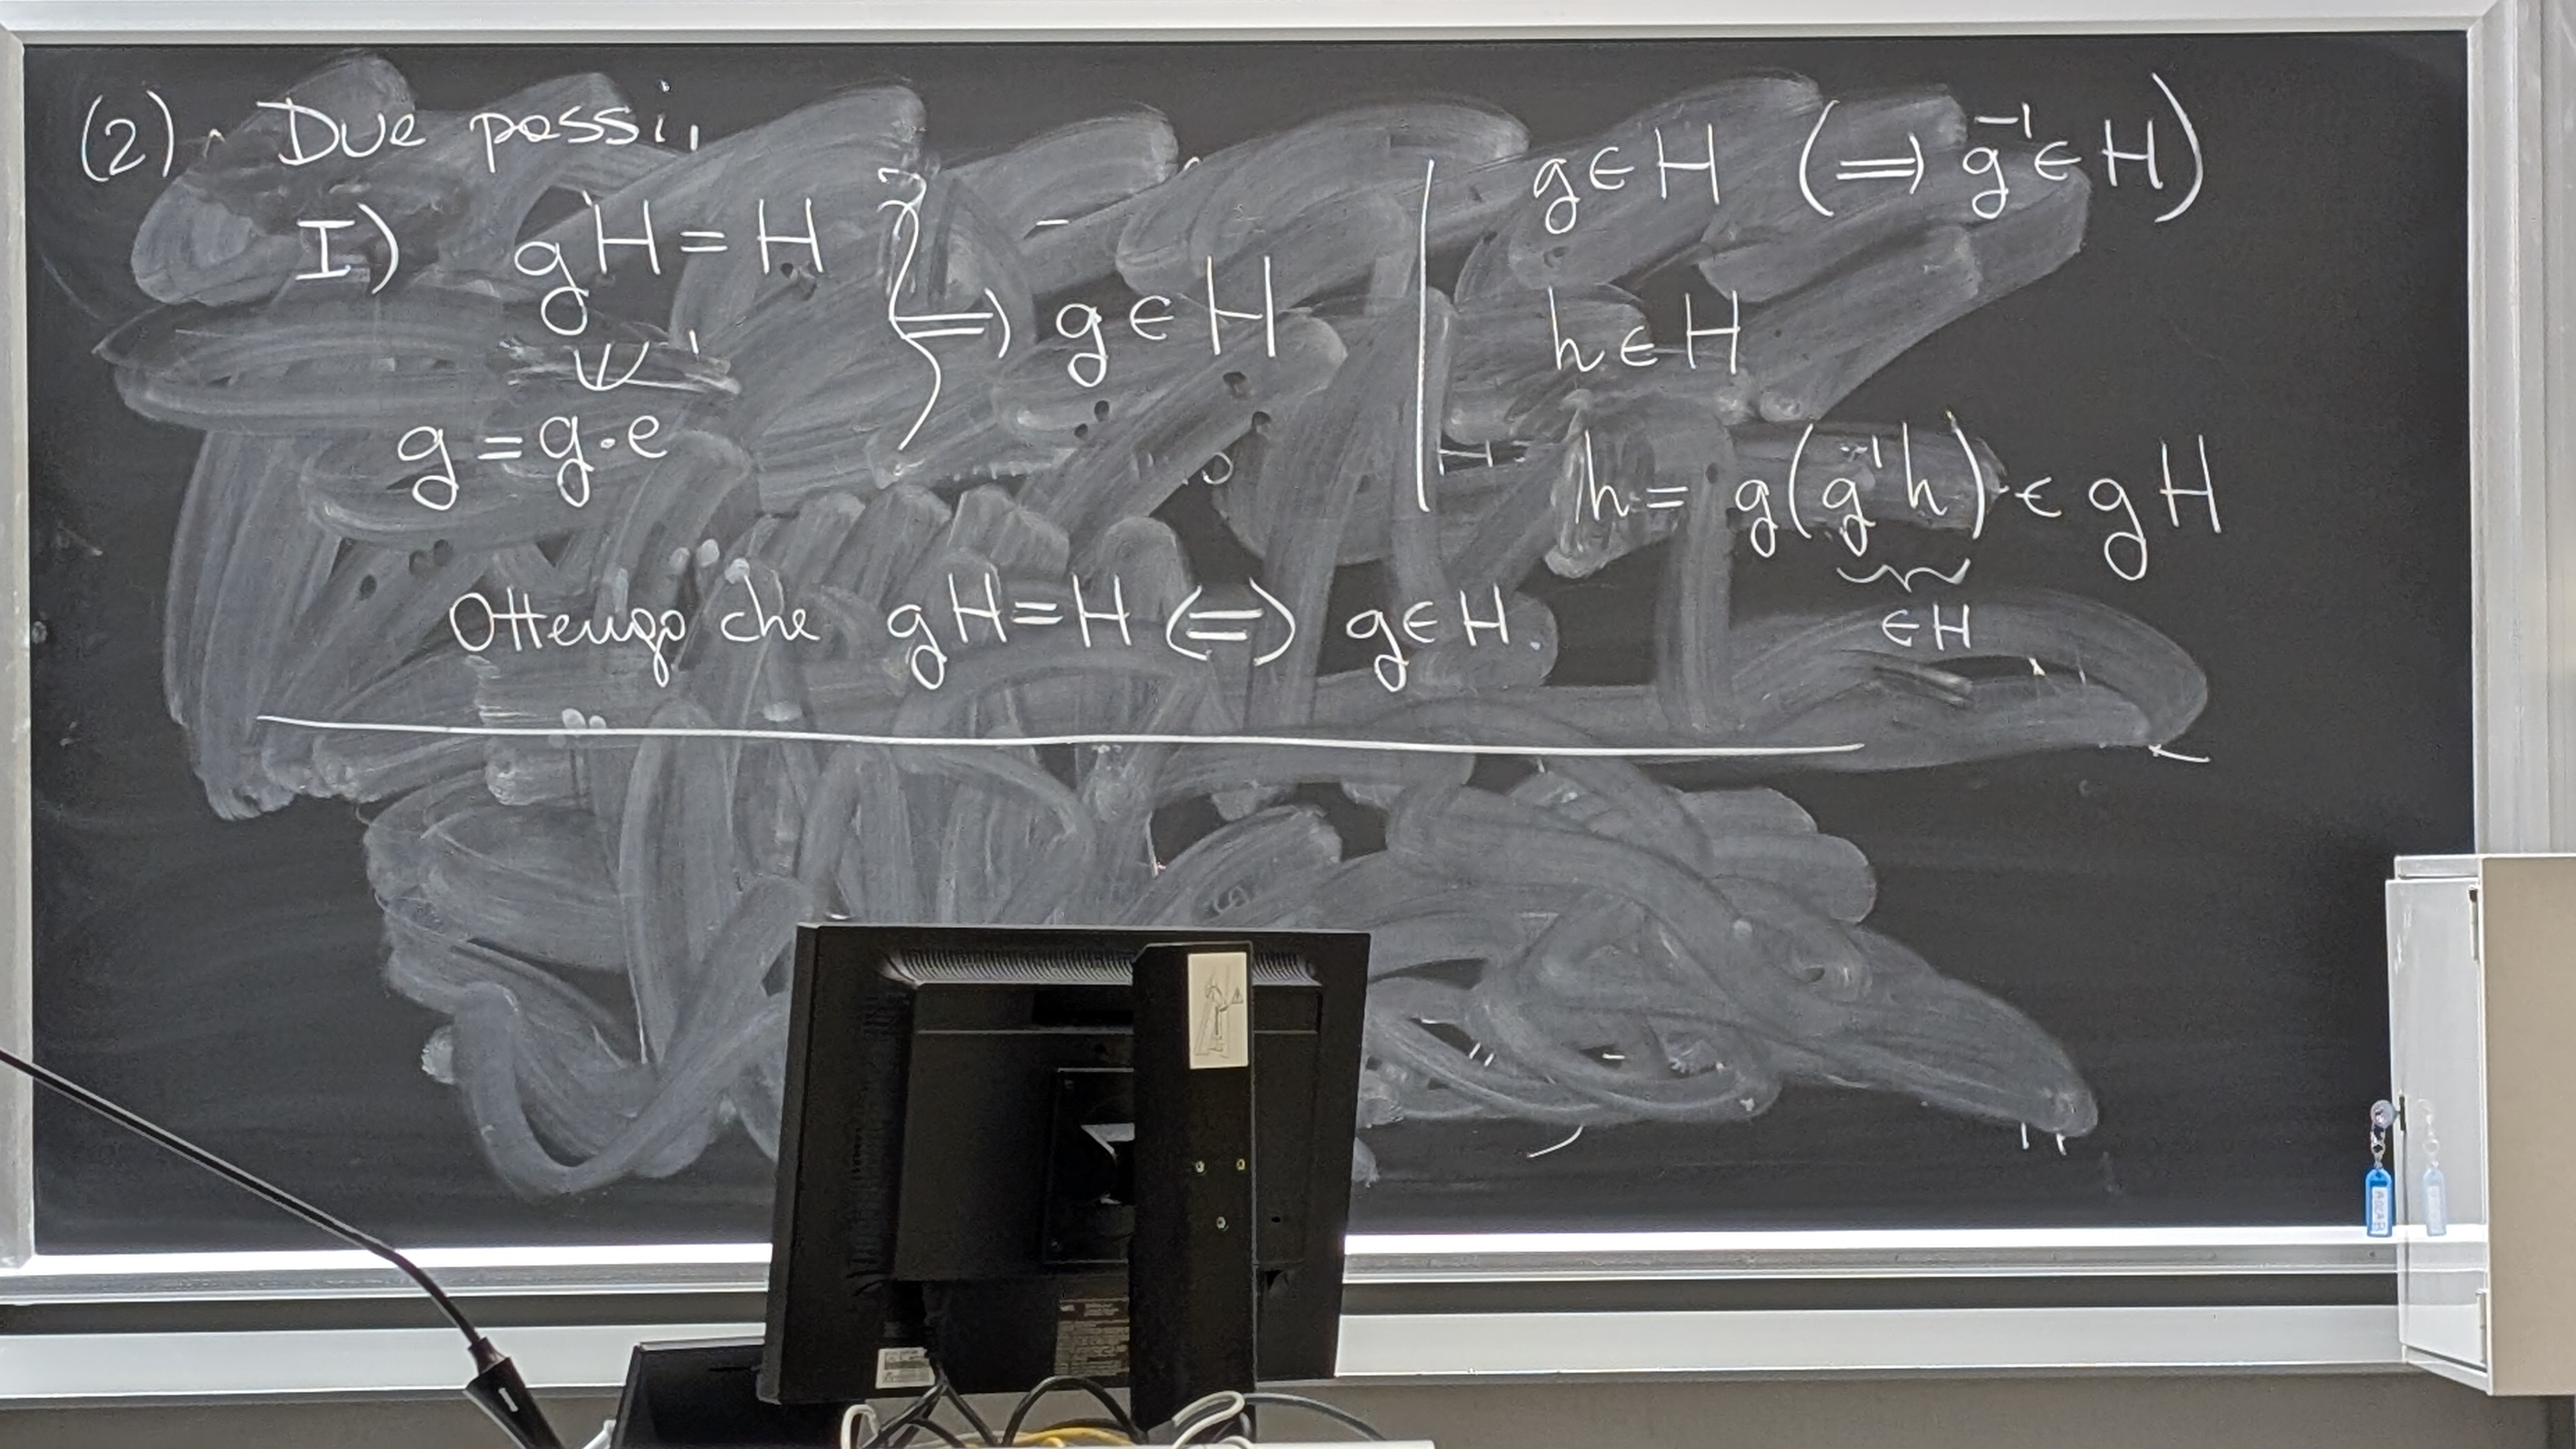 (2). Due passi.
I) gH = H } ⇒ g ∈ H
∪
g = g·e
g ∈ H (⇒ g⁻¹ ∈ H)
h ∈ H
h = g(g⁻¹h) ∈ gH
∈ H
Ottengo che gH = H (=) g ∈ H.